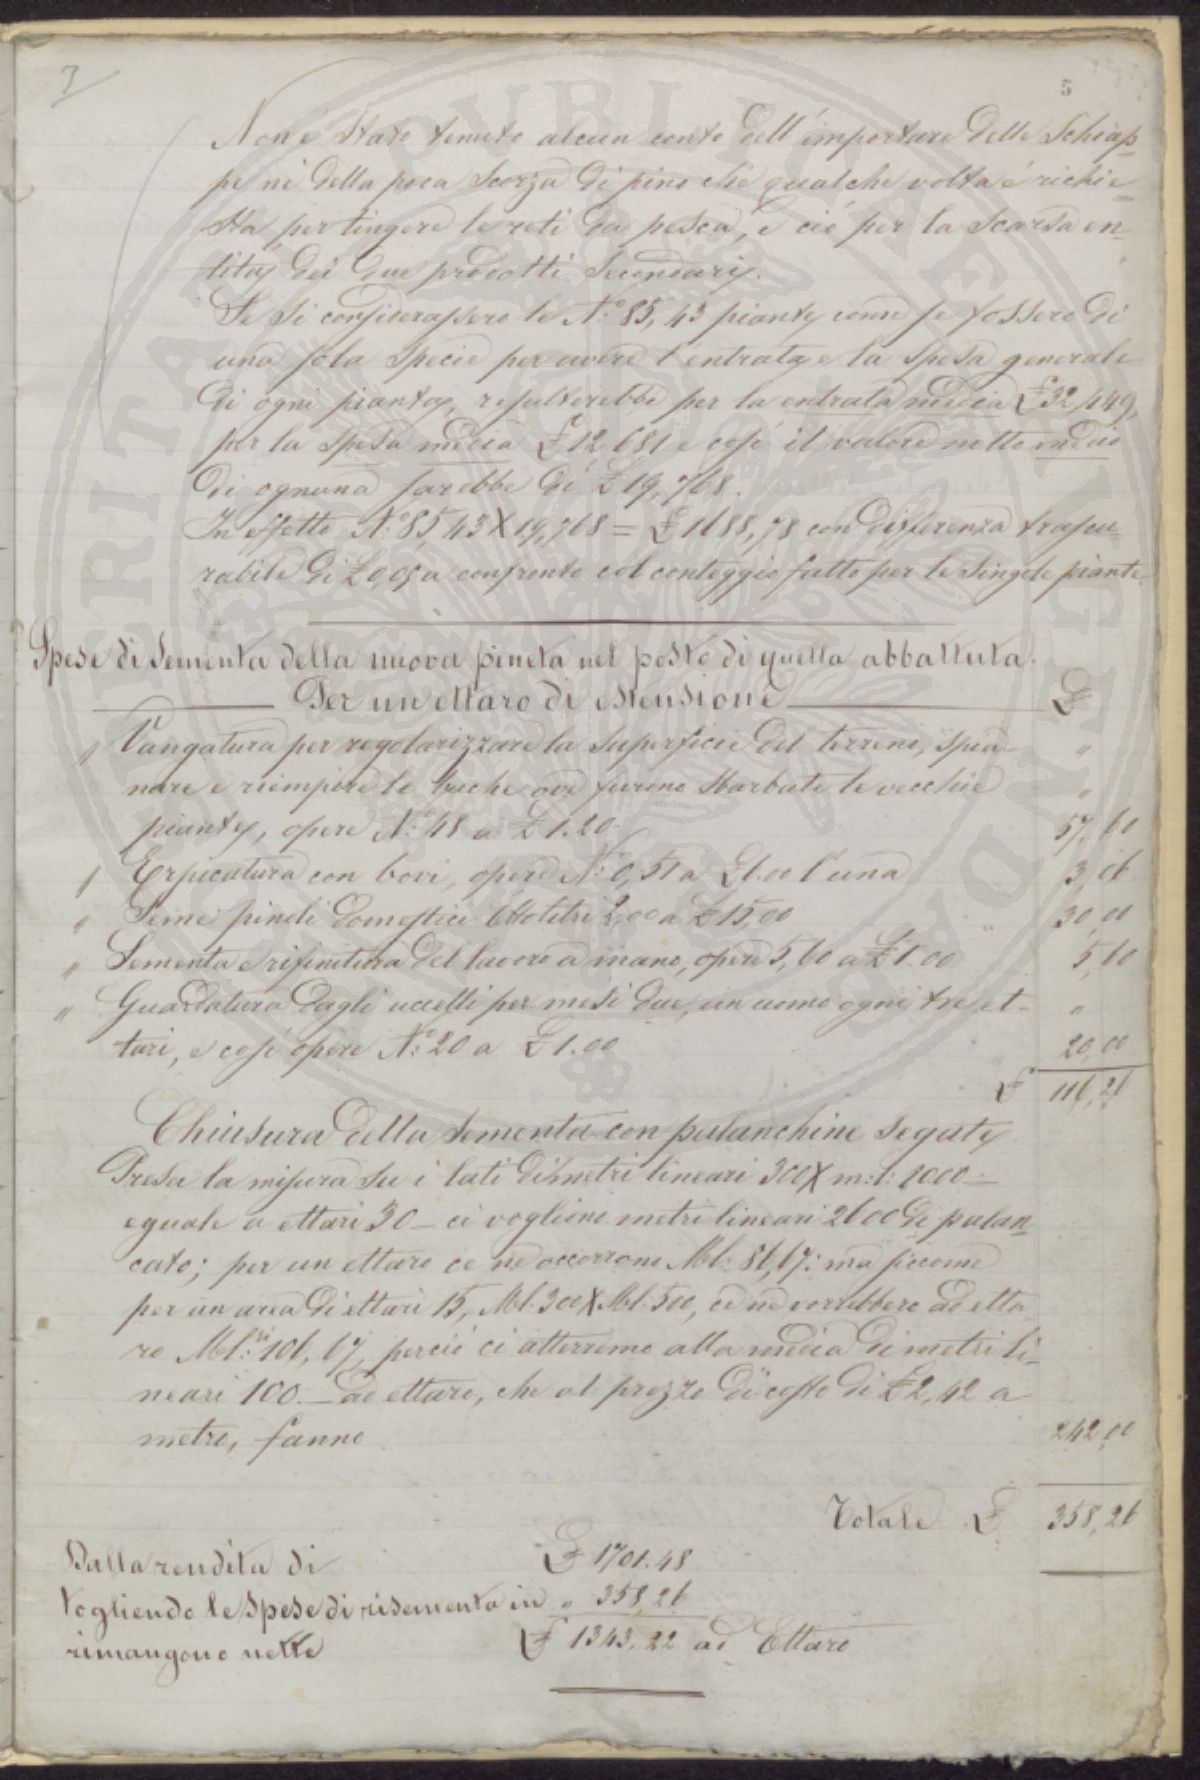 7
5
Non è stato tenuto alcun conto dell'importare delle Schiap-
pe nè della poca scorza di pino che qualche volta è richie
sta per tingere le reti da pesca, e ciò per la scarsa en-
tità dei due prodotti secondarj.
Se si considerassero le N.° 85,43 piante come se fossero di
una sola specie per avere l'entrata e la spesa generale
di ogni pianta, resulterebbe per la entrata media £ 32,449,
per la spesa media £ 12,681 e così il valore netto medio
di ognuna sarebbe di £ 19,768.
In effetto N.° 85,43 X 19,768 = £ 1688,78 con differenza trascu-
rabile di £ 0,05 a confronto col conteggio fatto per le singole piante.
Spese di Sementa della nuova pineta nel posto di quella abbattuta.
Per un ettaro di estensione £
" Vangatura per regolarizzare la superficie del terreno, spia- "
nare e riempire le buche ove furono sbarbate le vecchie "
piante, opere N.° 48 a £ 1.20. 57,60
" Erpicatura con bovi, opere N.° 0,51 a £ 6.00 l'una 3,06
" Seme pinoli domestici Ettolitri 2,00 a £ 15,00 " 30,00
" Sementa e rifinitura del lavoro a mano, opere 5,60 a £ 1.00 5,60
" Guardatura dagli uccelli per mesi due, un uomo ogni tre et- "
tari, e così opere N.° 20 a £ 1.00 20,00
£ 116,26
Chiusura della sementa con palanchine segate
Presa la misura su i lati di metri lineari 300 X m: l: 1000 –
eguale a ettari 30 – ci vogliono metri lineari 2600 di palan-
cato; per un ettaro ce ne occorrono Ml: 86,67: ma siccome
per un area di ettari 15, Ml. 300 X Ml. 500, ce ne vorrebbero ad etta-
ro Ml: 106,67, perciò ci atterremo alla media di metri li-
neari 100. – ad ettaro, che al prezzo di costo di £ 2,42 a
metro, fanno 242,00
Totale £ 358,26
Dalla rendita di £ 1701.48
Togliendo le spese di risementa in " 358,26
rimangono nette £ 1343.22 ad Ettaro